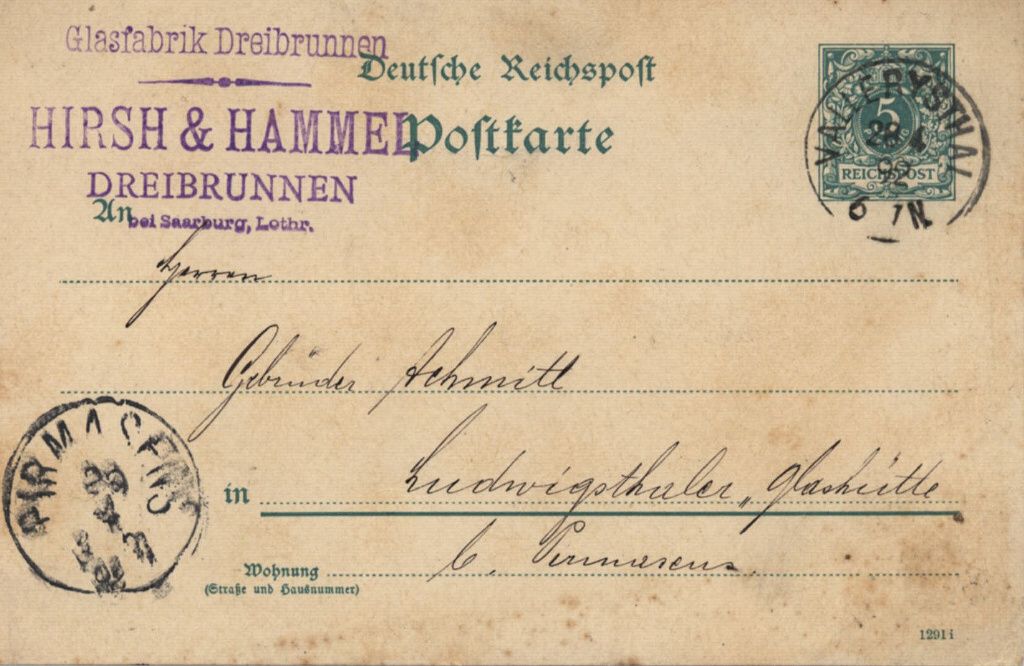 Glasfabrik Dreibrunnen
Deutsche Reichspost
HIRSH & HAMMEL
Postkarte
DREIBRUNNEN
An
bei Saarburg, Lothr.
5
REICHSPOST
VALLERYSTHAL
28 4
92
6 7 N.
Herren
Gebrüder Schmitt
in Ludwigsthaler „Glashütte
b. Pirmasens
Wohnung
(Straße und Hausnummer)
PIRMASENS
1291 i